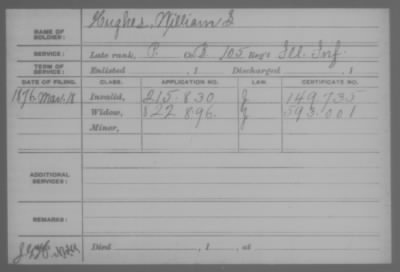 NAME OF SOLDIER: Hughes, William S
SERVICE: Late rank, P. Co. D, 105 Reg't Ill. Inf.
TERM OF SERVICE: Enlisted , 1 Discharged , 1
DATE OF FILING. CLASS. APPLICATION NO. LAW. CERTIFICATE NO.
1876 Mar. 18 Invalid, 215.830 149.735
Widow, 896. 593.001
Minor,
ADDITIONAL SERVICES:
REMARKS:
Died , 1 , at